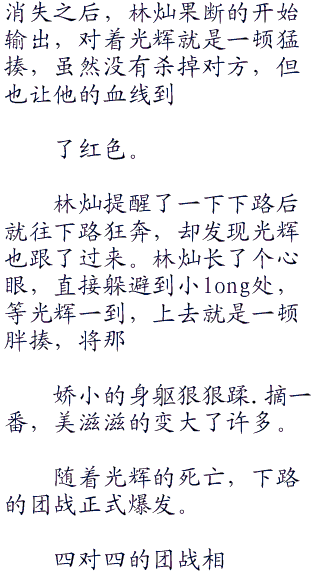 消失之后，林灿果断的开始
输出，对着光辉就是一顿猛
揍，虽然没有杀掉对方，但
也让他的血线到
了红色。
林灿提醒了一下下路后
就往下路狂奔，却发现光辉
也跟了过来。林灿长了个心
眼，直接躲避到小long处，
等光辉一到，上去就是一顿
胖揍，将那
娇小的身躯狠狠蹂.摘一
番，美滋滋的变大了许多。
随着光辉的死亡，下路
的团战正式爆发。
四对四的团战相